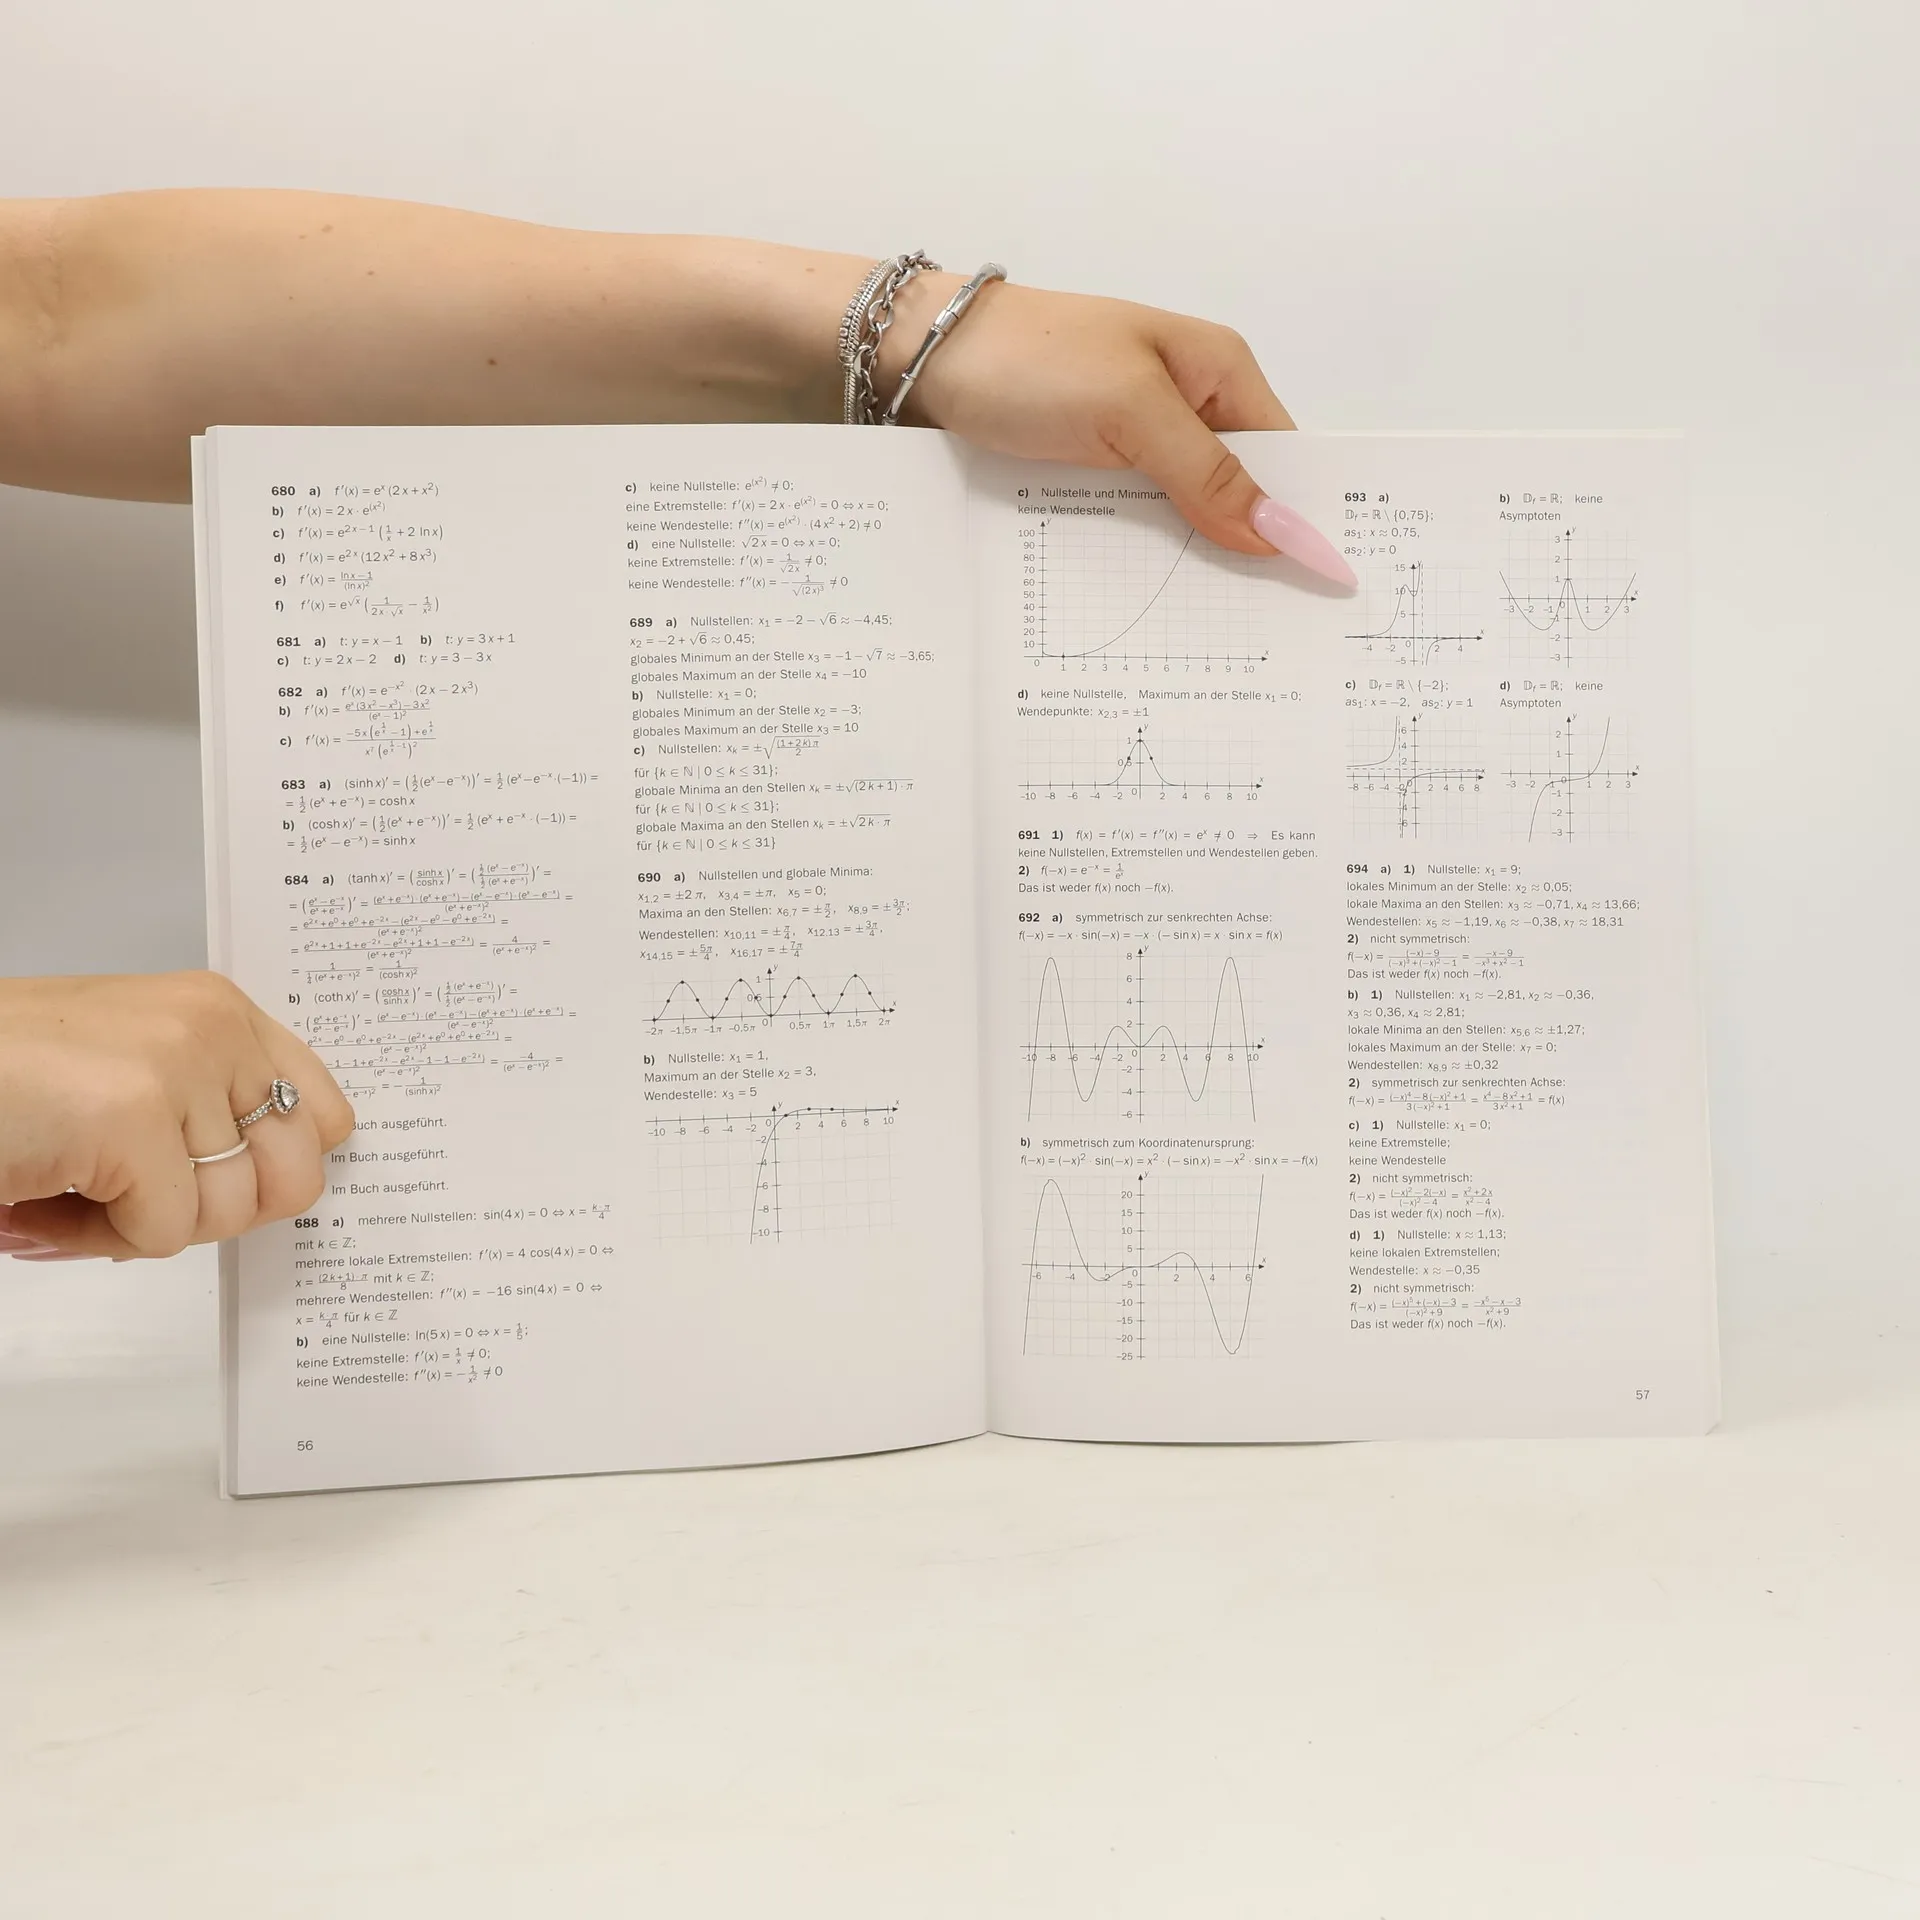 680 a) f'(x) = eˣ (2x + x²)
b) f'(x) = 2x · e^(x²)
c) f'(x) = e^(2x−1) (1/x + 2 ln x)
d) f'(x) = e^(2x) (12x² + 8x³)
e) f'(x) = (ln x − 1)/(ln x)²
f) f'(x) = e^√x (1/(2x·√x) − 1/x²)
681 a) t: y = x − 1 b) t: y = 3x + 1
c) t: y = 2x − 2 d) t: y = 3 − 3x
682 a) f'(x) = e^(−x²) · (2x − 2x³)
b) f'(x) = (eˣ(3x² − x³) − 3x²)/(eˣ − 1)²
c) f'(x) =
683 a) (sinh x)' = (½(eˣ − e⁻ˣ))' = ½ (eˣ − e⁻ˣ · (−1)) =
= ½ (eˣ + e⁻ˣ) = cosh x
b) (cosh x)' = (½(eˣ + e⁻ˣ))' = ½ (eˣ + e⁻ˣ · (−1)) =
= ½ (eˣ − e⁻ˣ) = sinh x
684 a) (tanh x)' = (sinh x/cosh x)' = (½(eˣ − e⁻ˣ)/½(eˣ + e⁻ˣ))' =
= ((eˣ − e⁻ˣ)/(eˣ + e⁻ˣ))' = ((eˣ + e⁻ˣ)·(eˣ + e⁻ˣ) − (eˣ − e⁻ˣ)·(eˣ − e⁻ˣ))/(eˣ + e⁻ˣ)² =
= (e²ˣ + e⁰ + e⁰ + e⁻²ˣ − (e²ˣ − e⁰ − e⁰ + e⁻²ˣ))/(eˣ + e⁻ˣ)² =
= (e²ˣ + 1 + 1 + e⁻²ˣ − e²ˣ + 1 + 1 − e⁻²ˣ)/(eˣ + e⁻ˣ)² = 4/(eˣ + e⁻ˣ)² =
= 1/(¼(eˣ + e⁻ˣ)²) = 1/(cosh x)²
b) (coth x)' = (cosh x/sinh x)' = (½(eˣ + e⁻ˣ)/½(eˣ − e⁻ˣ))' =
= ((eˣ + e⁻ˣ)/(eˣ − e⁻ˣ))' = ((eˣ − e⁻ˣ)·(eˣ − e⁻ˣ) − (eˣ + e⁻ˣ)·(eˣ + e⁻ˣ))/(eˣ − e⁻ˣ)² =
e²ˣ − e⁰ − e⁰ + e⁻²ˣ − (e²ˣ + e⁰ + e⁰ + e⁻²ˣ)/(eˣ − e⁻ˣ)² =
−1 − 1 + e⁻²ˣ − e²ˣ − 1 − 1 − e⁻²ˣ/(eˣ − e⁻ˣ)² = −4/(eˣ − e⁻ˣ)² =
= − 1/(sinh x)²
Buch ausgeführt.
Im Buch ausgeführt.
Im Buch ausgeführt.
688 a) mehrere Nullstellen: sin(4x) = 0 ⇔ x = k·π/4
mit k ∈ ℤ;
mehrere lokale Extremstellen: f'(x) = 4 cos(4x) = 0 ⇔
x = (2k+1)·π/8 mit k ∈ ℤ;
mehrere Wendestellen: f''(x) = −16 sin(4x) = 0 ⇔
x = k·π/4 für k ∈ ℤ
b) eine Nullstelle: ln(5x) = 0 ⇔ x = 1/5;
keine Extremstelle: f'(x) = 1/x ≠ 0;
keine Wendestelle: f''(x) = −1/x² ≠ 0
56
c) keine Nullstelle: e^(x²) ≠ 0;
eine Extremstelle: f'(x) = 2x · e^(x²) = 0 ⇔ x = 0;
keine Wendestelle: f''(x) = e^(x²) · (4x² + 2) ≠ 0
d) eine Nullstelle: √(2x) = 0 ⇔ x = 0;
keine Extremstelle: f'(x) = 1/√(2x) ≠ 0;
keine Wendestelle: f''(x) = −1/√((2x)³) ≠ 0
689 a) Nullstellen: x₁ = −2 − √6 ≈ −4,45;
x₂ = −2 + √6 ≈ 0,45;
globales Minimum an der Stelle x₃ = −1 − √7 ≈ −3,65;
globales Maximum an der Stelle x₄ = −10
b) Nullstelle: x₁ = 0;
globales Minimum an der Stelle x₂ = −3;
globales Maximum an der Stelle x₃ = 10
c) Nullstellen: xₖ = ±√((1+2k)π/2)
für {k ∈ ℕ | 0 ≤ k ≤ 31};
globale Minima an den Stellen xₖ = ±√((2k+1)·π)
für {k ∈ ℕ | 0 ≤ k ≤ 31};
globale Maxima an den Stellen xₖ = ±√(2k·π)
für {k ∈ ℕ | 0 ≤ k ≤ 31}
690 a) Nullstellen und globale Minima:
x₁,₂ = ±2π, x₃,₄ = ±π, x₅ = 0;
Maxima an den Stellen: x₆,₇ = ±π/2, x₈,₉ = ±3π/2;
Wendestellen: x₁₀,₁₁ = ±π/4, x₁₂,₁₃ = ±3π/4,
x₁₄,₁₅ = ±5π/4, x₁₆,₁₇ = ±7π/4
y
1
0,5
−2π −1,5π −1π −0,5π 0 0,5π 1π 1,5π 2π x
b) Nullstelle: x₁ = 1,
Maximum an der Stelle x₂ = 3,
Wendestelle: x₃ = 5
y
−10 −8 −6 −4 −2 0 2 4 6 8 10 x
−2
−4
−6
−8
−10
c) Nullstelle und Minimum,
keine Wendestelle
y
100
90
80
70
60
50
40
30
20
10
0 1 2 3 4 5 6 7 8 9 10 x
d) keine Nullstelle, Maximum an der Stelle x₁ = 0;
Wendepunkte: x₂,₃ = ±1
y
1
0,5
−10 −8 −6 −4 −2 0 2 4 6 8 10 x
691 1) f(x) = f'(x) = f''(x) = eˣ ≠ 0 ⇒ Es kann
keine Nullstellen, Extremstellen und Wendestellen geben.
2) f(−x) = e⁻ˣ = 1/eˣ
Das ist weder f(x) noch −f(x).
692 a) symmetrisch zur senkrechten Achse:
f(−x) = −x · sin(−x) = −x · (− sin x) = x · sin x = f(x)
y
8
6
4
2
−10 −8 −6 −4 −2 0 2 4 6 8 10 x
−2
−4
−6
b) symmetrisch zum Koordinatenursprung:
f(−x) = (−x)² · sin(−x) = x² · (− sin x) = −x² · sin x = −f(x)
y
20
15
10
5
−6 −4 −2 0 2 4 6 x
−5
−10
−15
−20
−25
693 a)
𝔻f = ℝ \ {0,75};
as₁: x ≈ 0,75,
as₂: y = 0
y
15
10
5
−4 −2 0 2 4 x
−5
b) 𝔻f = ℝ; keine
Asymptoten
y
3
2
1
−3 −2 −1 0 1 2 3 x
−1
−2
−3
c) 𝔻f = ℝ \ {−2};
as₁: x = −2, as₂: y = 1
y
6
4
2
−8 −6 −4 −2 0 2 4 6 8 x
−2
−4
−6
d) 𝔻f = ℝ; keine
Asymptoten
y
2
1
−3 −2 −1 0 1 2 3 x
−1
−2
−3
694 a) 1) Nullstelle: x₁ = 9;
lokales Minimum an der Stelle: x₂ ≈ 0,05;
lokale Maxima an den Stellen: x₃ ≈ −0,71, x₄ ≈ 13,66;
Wendestellen: x₅ ≈ −1,19, x₆ ≈ −0,38, x₇ ≈ 18,31
2) nicht symmetrisch:
f(−x) = ((−x) − 9)/((−x)³ + (−x)² − 1) = (−x − 9)/(−x³ + x² − 1)
Das ist weder f(x) noch −f(x).
b) 1) Nullstellen: x₁ ≈ −2,81, x₂ ≈ −0,36,
x₃ ≈ 0,36, x₄ ≈ 2,81;
lokale Minima an den Stellen: x₅,₆ ≈ ±1,27;
lokales Maximum an der Stelle: x₇ = 0;
Wendestellen: x₈,₉ ≈ ±0,32
2) symmetrisch zur senkrechten Achse:
f(−x) = ((−x)⁴ − 8(−x)² + 1)/(3(−x)² + 1) = (x⁴ − 8x² + 1)/(3x² + 1) = f(x)
c) 1) Nullstelle: x₁ = 0;
keine Extremstelle;
keine Wendestelle
2) nicht symmetrisch:
f(−x) = ((−x)² − 2(−x))/((−x)² − 4) = (x² + 2x)/(x² − 4)
Das ist weder f(x) noch −f(x).
d) 1) Nullstelle: x ≈ 1,13;
keine lokalen Extremstellen;
Wendestelle: x ≈ −0,35
2) nicht symmetrisch:
f(−x) = ((−x)⁵ + (−x) − 3)/((−x)² + 9) = (−x⁵ − x − 3)/(x² + 9)
Das ist weder f(x) noch −f(x).
57